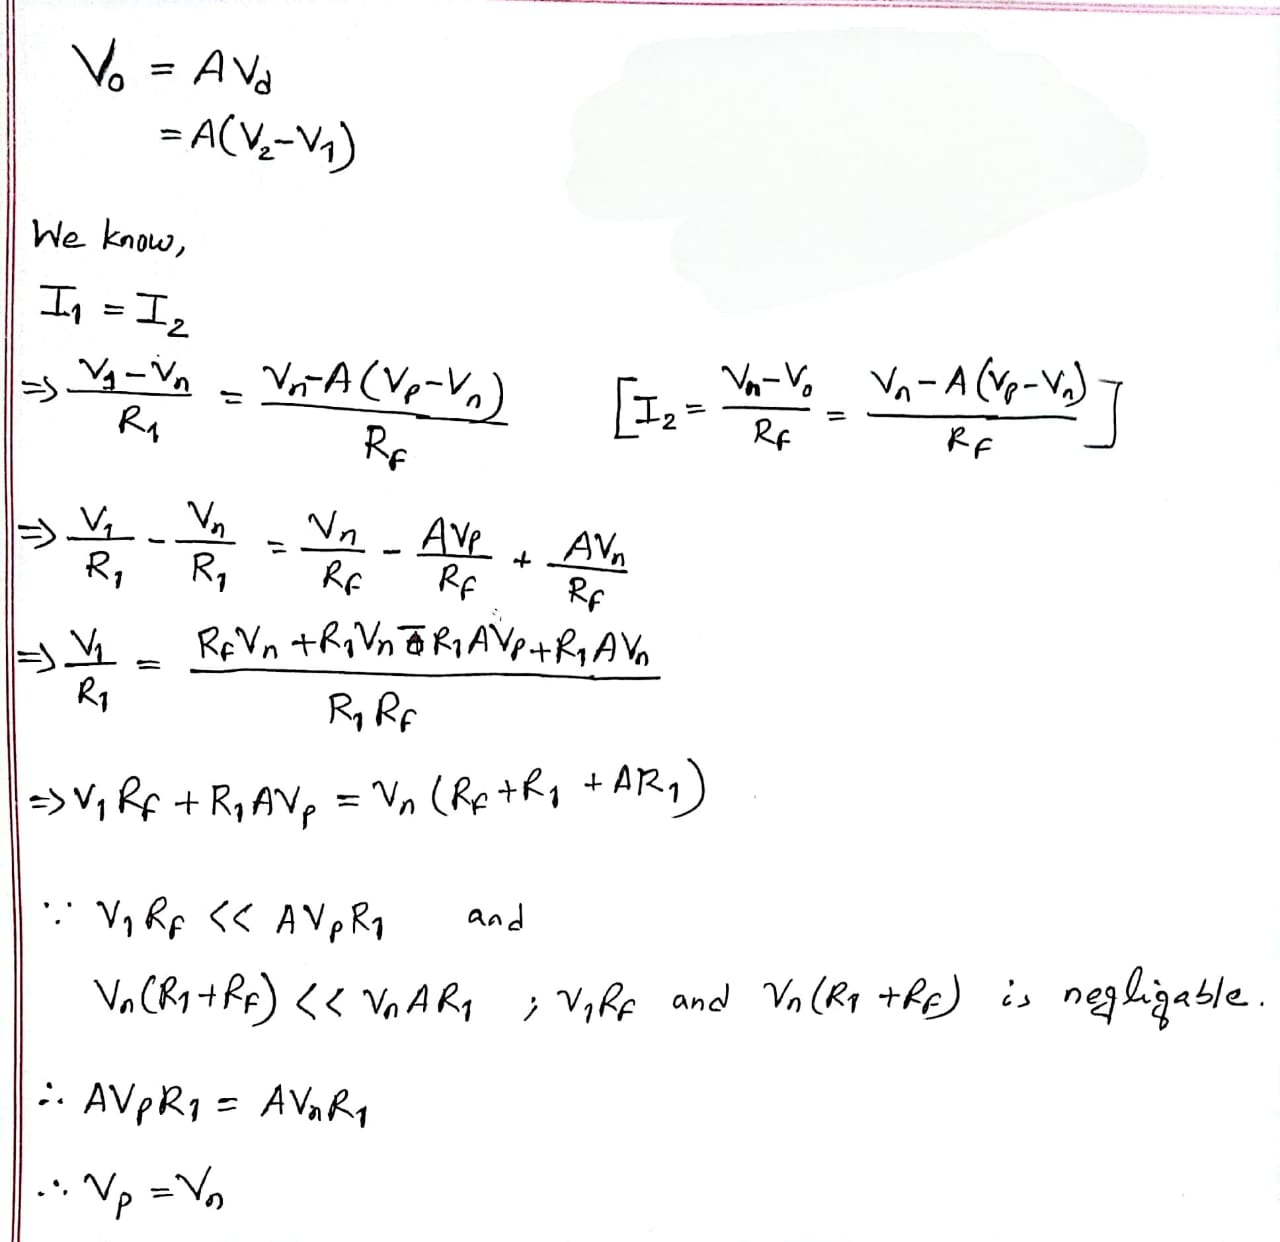 V₀ = AV_d
= A(V₂-V₁)
We know,
I₁ = I₂
⇒ (V₁-Vₙ)/R₁ = (Vₙ-A(Vₚ-Vₙ))/R_F [I₂ = (Vₙ-V₀)/R_F = (Vₙ-A(Vₚ-Vₙ))/R_F]
⇒ V₁/R₁ - Vₙ/R₁ = Vₙ/R_F - AVₚ/R_F + AVₙ/R_F
⇒ V₁/R₁ = (R_FVₙ + R₁Vₙ - R₁AVₚ + R₁AVₙ)/(R₁R_F)
⇒ V₁R_F + R₁AVₚ = Vₙ(R_F + R₁ + AR₁)
∵ V₁R_F << AVₚR₁ and
Vₙ(R₁+R_F) << VₙAR₁ ; V₁R_F and Vₙ(R₁+R_F) is negligable.
∴ AVₚR₁ = AVₙR₁
∴ Vₚ = Vₙ